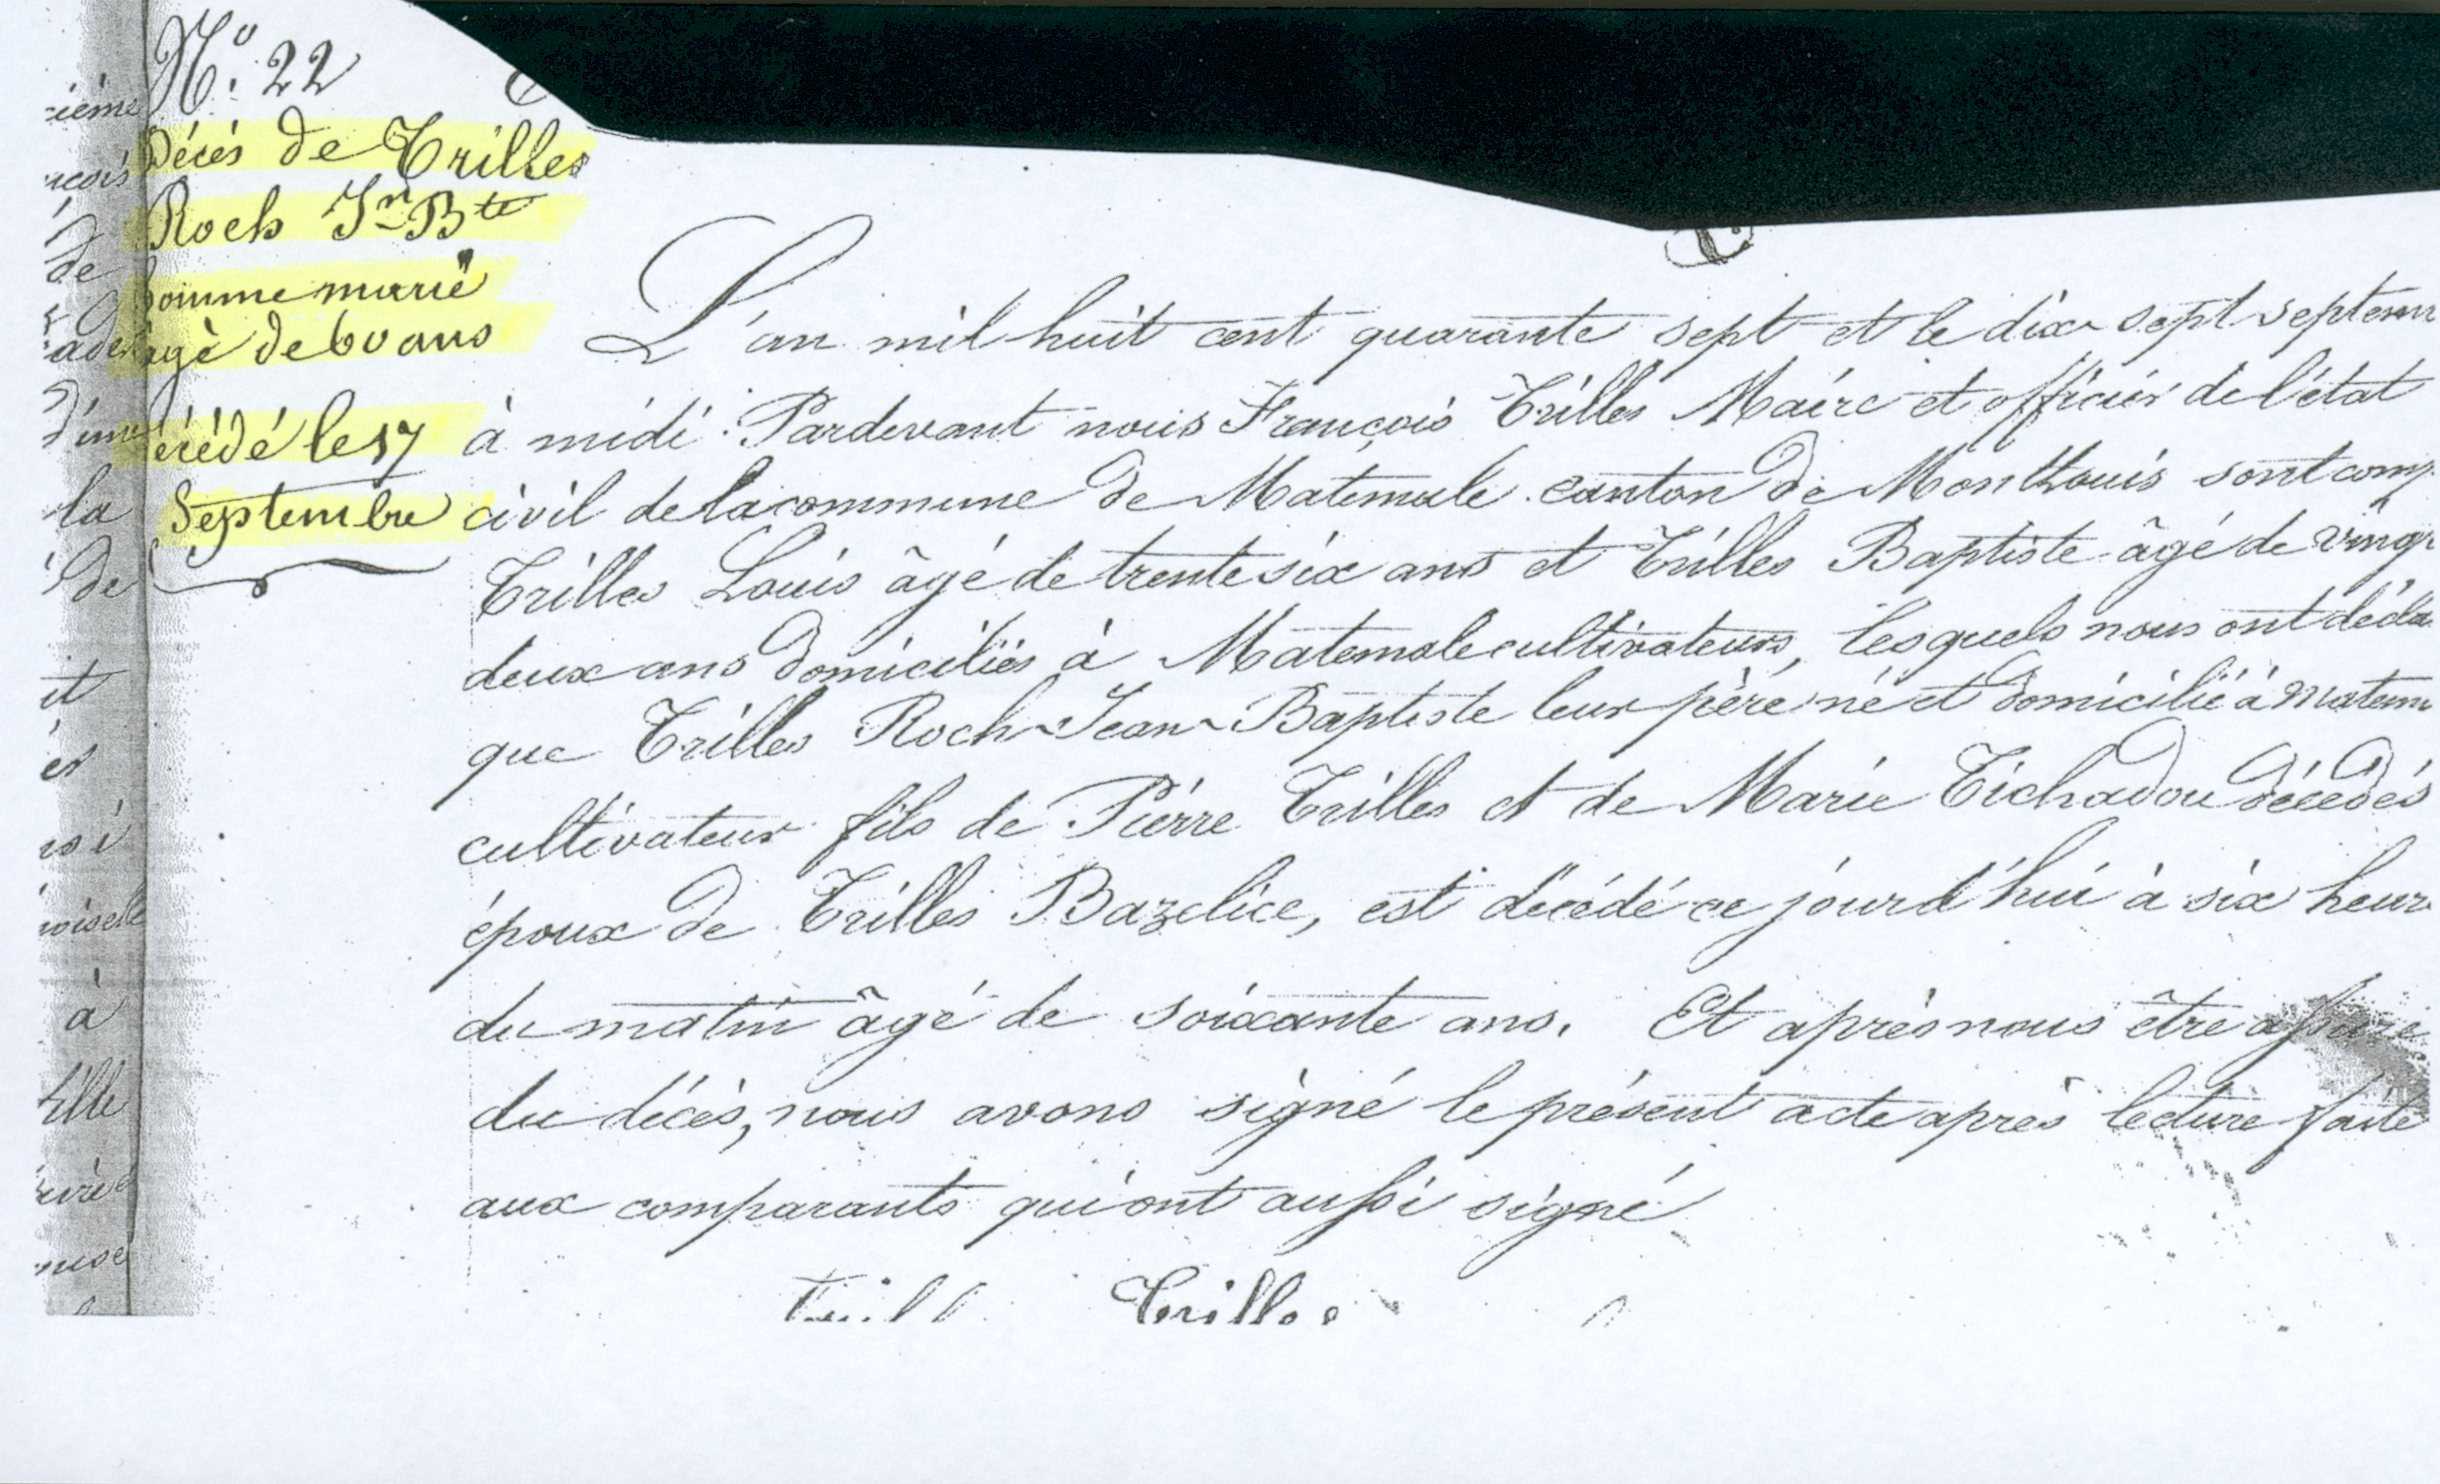 N.o 22
Décès de Trilles
Roch Jn Bte
homme marié
âgé de 60 ans
décédé le 17
Septembre
L'an mil huit cent quarante sept et le dix sept septem
à midi Pardevant nous François Trilles Maire et officier de l'état
civil de la commune de Matemale canton de MontLouis sont comp
Trilles Louis âgé de trente six ans et Trilles Baptiste âgé de vingt
deux ans domiciliés à Matemale cultivateurs, lesquels nous ont décla
que Trilles Roch Jean Baptiste leur père né et domicilié à Matem
cultivateur fils de Pierre Trilles et de Marie Tichadou décédés
époux de Trilles Bazelice, est décédé ce jourd'hui à six heur
du matin âgé de soixante ans. Et après nous être assuré
du décès, nous avons signé le présent acte après lecture faite
aux comparants qui ont aussi signé
Trilles